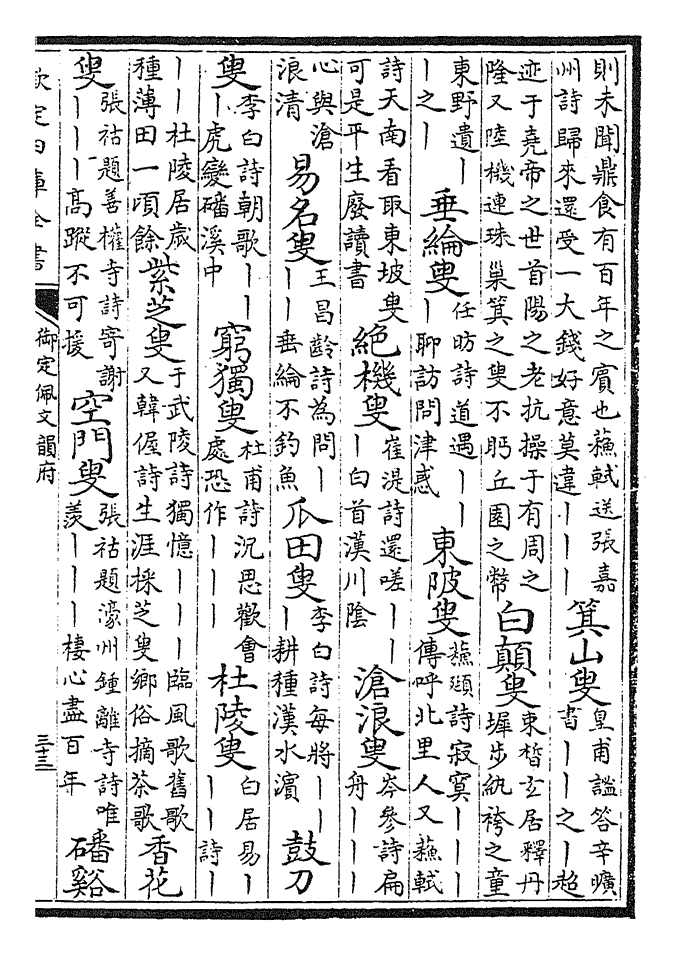 則未聞鼎食有百年之賓也蘇軾送張嘉
州詩歸來還受一大錢好意莫違丨丨丨
箕山叟
皇甫謐答辛曠
書丨丨之丨超
迹于堯帝之世首陽之老抗操于有周之
隆又陸機連珠巢箕之叟不眄丘園之幣
白顛叟
束晳玄居釋丹
墀步紈袴之童
東野遺丨
丨之丨
垂綸叟
任昉詩道遇丨丨
丨聊訪問津惑
東陂叟
蘇頲詩寂寞丨丨丨
傳呼北里人又蘇軾
詩天南看取東坡叟
可是平生廢讀書
絶機叟
崔湜詩還嗟丨丨
丨白首漢川陰
滄浪叟
岑參詩扁
舟丨丨丨
心與滄
浪清
易名叟
王昌齡詩為問丨
丨丨垂綸不釣魚
瓜田叟
李白詩每將丨丨
丨耕種漢水濵
鼓刀
叟
李白詩朝歌丨丨
丨虎變磻溪中
窮獨叟
杜甫詩沉思歡會
處恐作丨丨丨
杜陵叟
白居易丨
丨丨詩丨
丨丨杜陵居歲
種薄田一頃餘
紫芝叟
于武陵詩獨憶丨丨丨臨風歌舊歌
又韓偓詩生涯採芝叟鄉俗摘茶歌
香花
叟
張祜題善權寺詩寄謝
丨丨丨高蹤不可援
空門叟
張祜題濠州鍾離寺詩唯
羨丨丨丨棲心盡百年
磻谿
欽定四庫全書
御定佩文韻府
三十三